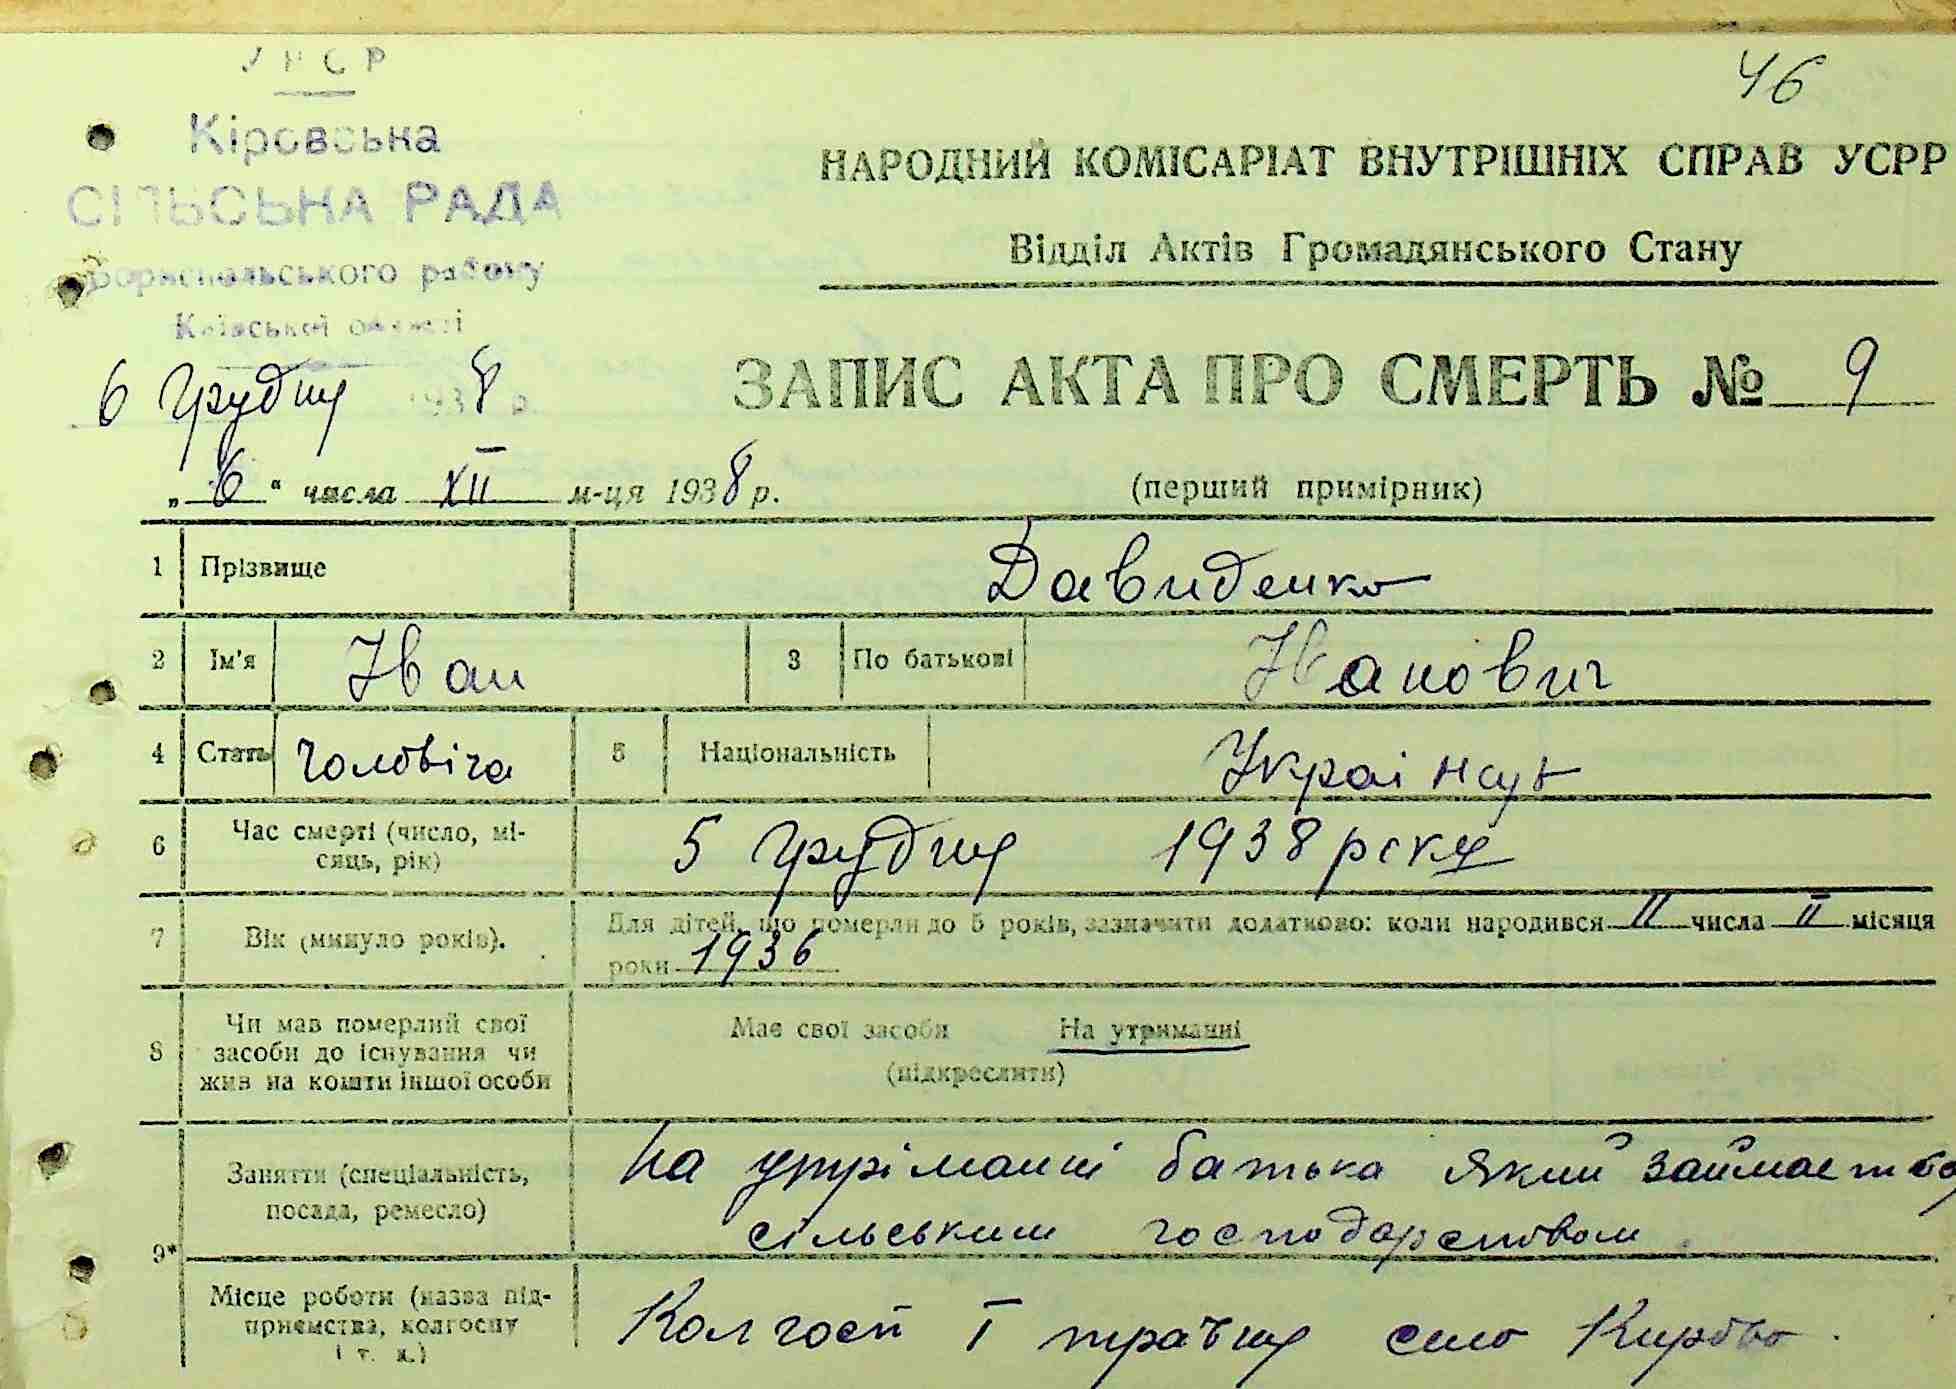 УРСР
46
Кіровська
СІЛЬСЬКА РАДА
Бориспільського району
Київської області
НАРОДНИЙ КОМІСАРІАТ ВНУТРІШНІХ СПРАВ УСРР
Відділ Актів Громадянського Стану
6 Грудня 1938 р.
ЗАПИС АКТА ПРО СМЕРТЬ № 9
„ 6 " числа XII м-ця 1938 р.
(перший примірник)
1 Прізвище Давиденко
2 Ім'я Іван 3 По батькові Іванович
4 Стать чоловіча 5 Національність Українець
6 Час смерті (число, мі-
сяць, рік) 5 Грудня 1938 року
7 Вік (минуло років). Для дітей, що померли до 5 років, зазначити додатково: коли народився II числа II місяця
роки 1936
8 Чи мав померлий свої
засоби до існування чи
жив на кошти іншої особи
Має свої засоби На утриманні
(підкреслити)
9* Заняття (спеціальність,
посада, ремесло)
На утріманні батька який займаеться
сільським господарством
Місце роботи (назва під-
приємства, колгоспу
і т. д.)
Колгосп I травня село Кирово.